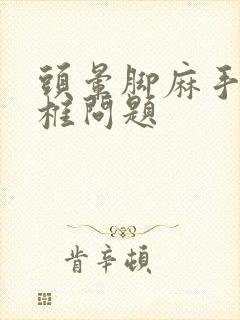 頭暈脚麻手
椎問題
肯辛頓